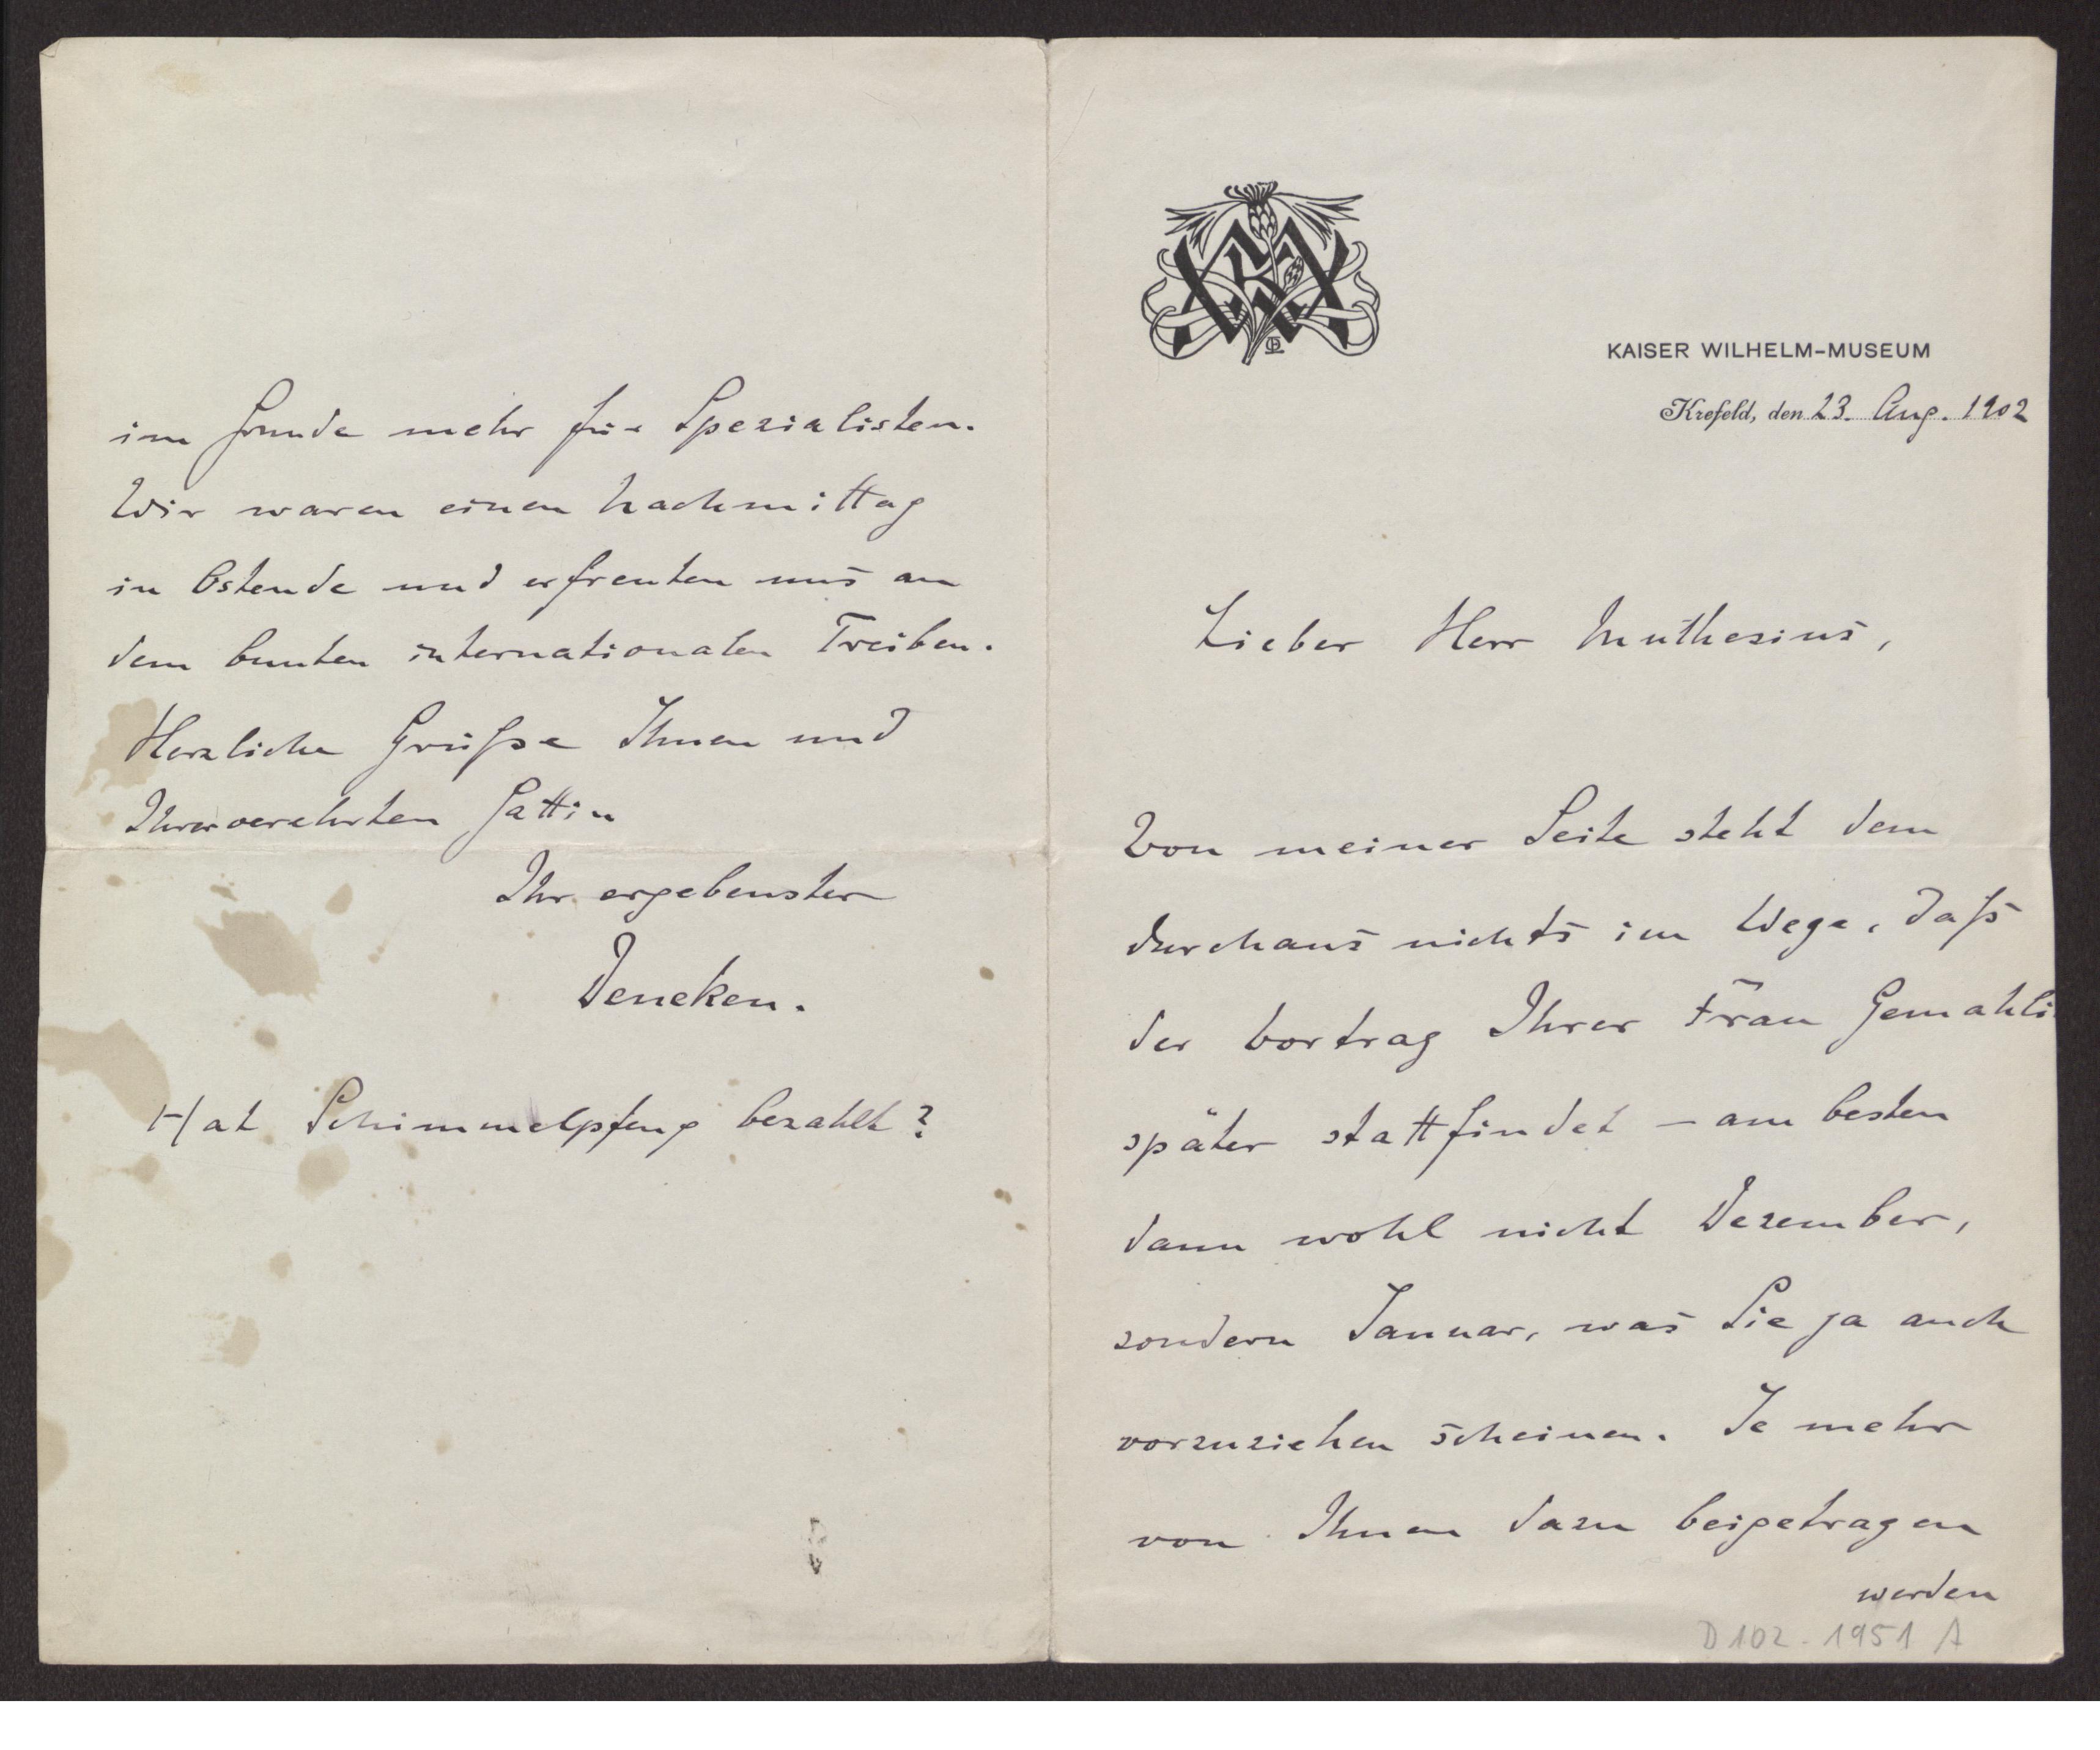 KAISER WILHELM-MUSEUM
Krefeld, den 23. Aug. 1902
Lieber Herr Muthesius,
Von meiner Seite steht dem
durchaus nichts im Wege, daſs
der Vortrag Ihrer Frau Gemahli
später stattfindet – am besten
dann wohl nicht Dezember,
sondern Januar, was Sie ja auch
vorzuziehen scheinen. Je mehr
von Ihnen dazu beigetragen
werden
D 102 - 1951 A
im Grunde mehr für Spezialisten.
Wir waren einen Nachmittag
in Ostende und erfreuten uns an
dem bunten internationalen Treiben.
Herzliche Grüſse Ihnen und
Ihrer verehrten Gattin
Ihr ergebenster
Deneken.
Hat Schimmelpfeng bezahlt?